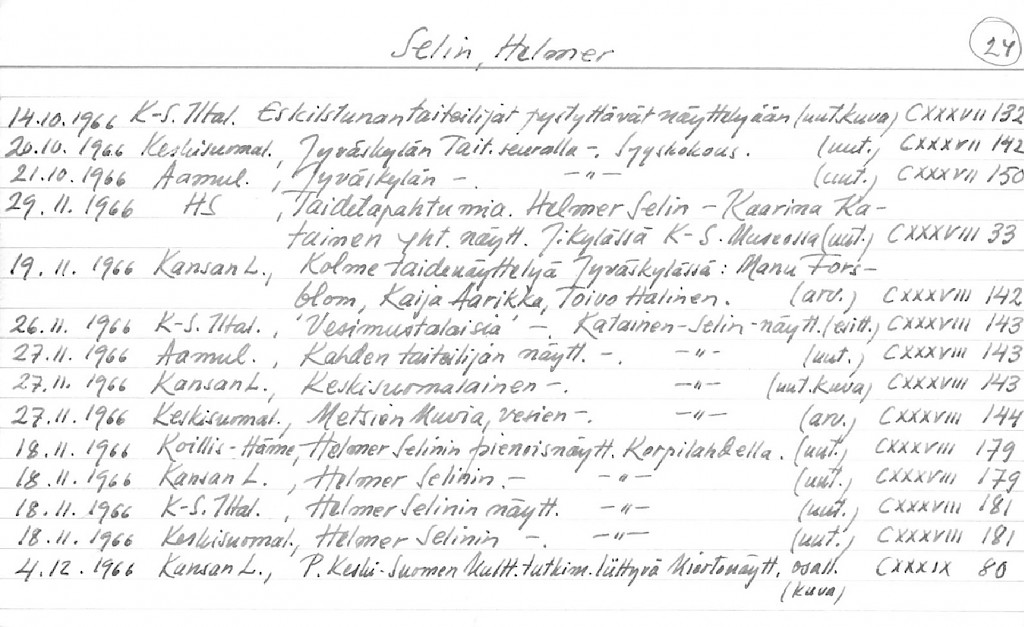 Selin, Helmer
24
14.10.1966 K-S. Iltal. Eskilstunan taiteilijat pystyttävät näyttelyään (uut.kuva) CXXXVII 132
20.10.1966 Keskisuomal., Jyväskylän Tait.seuralla -. Syyskokous. (uut.) CXXXVII 142
21.10.1966 Aamul., Jyväskylän -. -"- (uut.) CXXXVII 150
29.11.1966 HS, Taidetapahtumia. Helmer Selin - Kaarina Ka-
tainen yht. näytt. J:kylässä K-S. Museossa (uut.) CXXXVIII 33
19.11.1966 Kansan L., Kolme taidenäyttelyä Jyväskylässä: Manu Fors-
blom, Kaija Aarikka, Toivo Halinen. (arv.) CXXXVIII 142
26.11.1966 K-S. Iltal., 'Vesimustalaisia' -. Katainen-Selin-näytt. (esitt.) CXXXVIII 143
27.11.1966 Aamul., Kahden taiteilijan näytt. -. -"- (uut.) CXXXVIII 143
27.11.1966 Kansan L., Keskisuomalainen -. -"- (uut.kuva) CXXXVIII 143
27.11.1966 Keskisuomal., Metsien kuvia, vesien -. -"- (arv.) CXXXVIII 144
18.11.1966 Koillis-Häme, Helmer Selinin pienoisnäytt. Korpilahdella. (uut.) CXXXVIII 179
18.11.1966 Kansan L., Helmer Selinin. - -"- (uut.) CXXXVIII 179
18.11.1966 K-S. Iltal., Helmer Selinin näytt. -"- (uut.) CXXXVIII 181
18.11.1966 Keskisuomal., Helmer Selinin -. -"- (uut.) CXXXVIII 181
4.12.1966 Kansan L., P. Keski-Suomen kultt.tutkim. liittyvä kiertonäytt. osall. CXXXIX 80
(kuva)